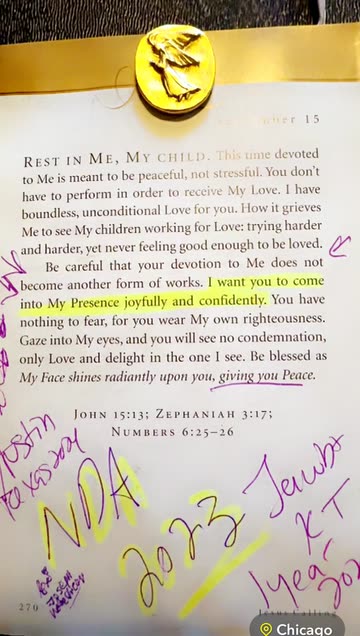 September 15
REST IN ME, MY CHILD. This time devoted
to Me is meant to be peaceful, not stressful. You don't
have to perform in order to receive My Love. I have
boundless, unconditional Love for you. How it grieves
Me to see My children working for Love: trying harder
and harder, yet never feeling good enough to be loved.
Be careful that your devotion to Me does not
become another form of works. I want you to come
into My Presence joyfully and confidently. You have
nothing to fear, for you wear My own righteousness.
Gaze into My eyes, and you will see no condemnation,
only Love and delight in the one I see. Be blessed as
My Face shines radiantly upon you, giving you Peace.
JOHN 15:13; ZEPHANIAH 3:17;
NUMBERS 6:25–26
Austin
Texas 2024
NDA
2023
KT
1 year
270
Jesus Calling
Chicago